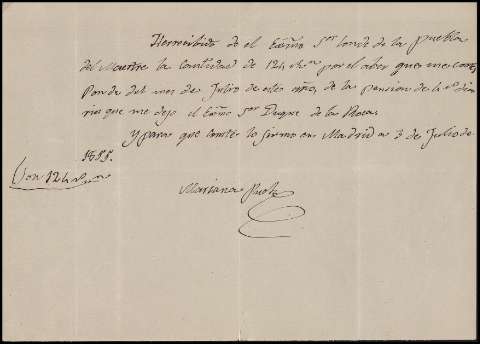 Herrecibido de el Exmo Sor Conde de la Puebla
del Maestre la Cantidad de 124 rs vn por el aber que me Corres
Ponde del mes de Julio de este año, de la pension de 4 rs dia
rios que me dejo el Exmo Sor Duque de la Roca.
Y para que conste lo firmo en Madrid a 3 de Julio de
Son 124 rs vn
Mariana